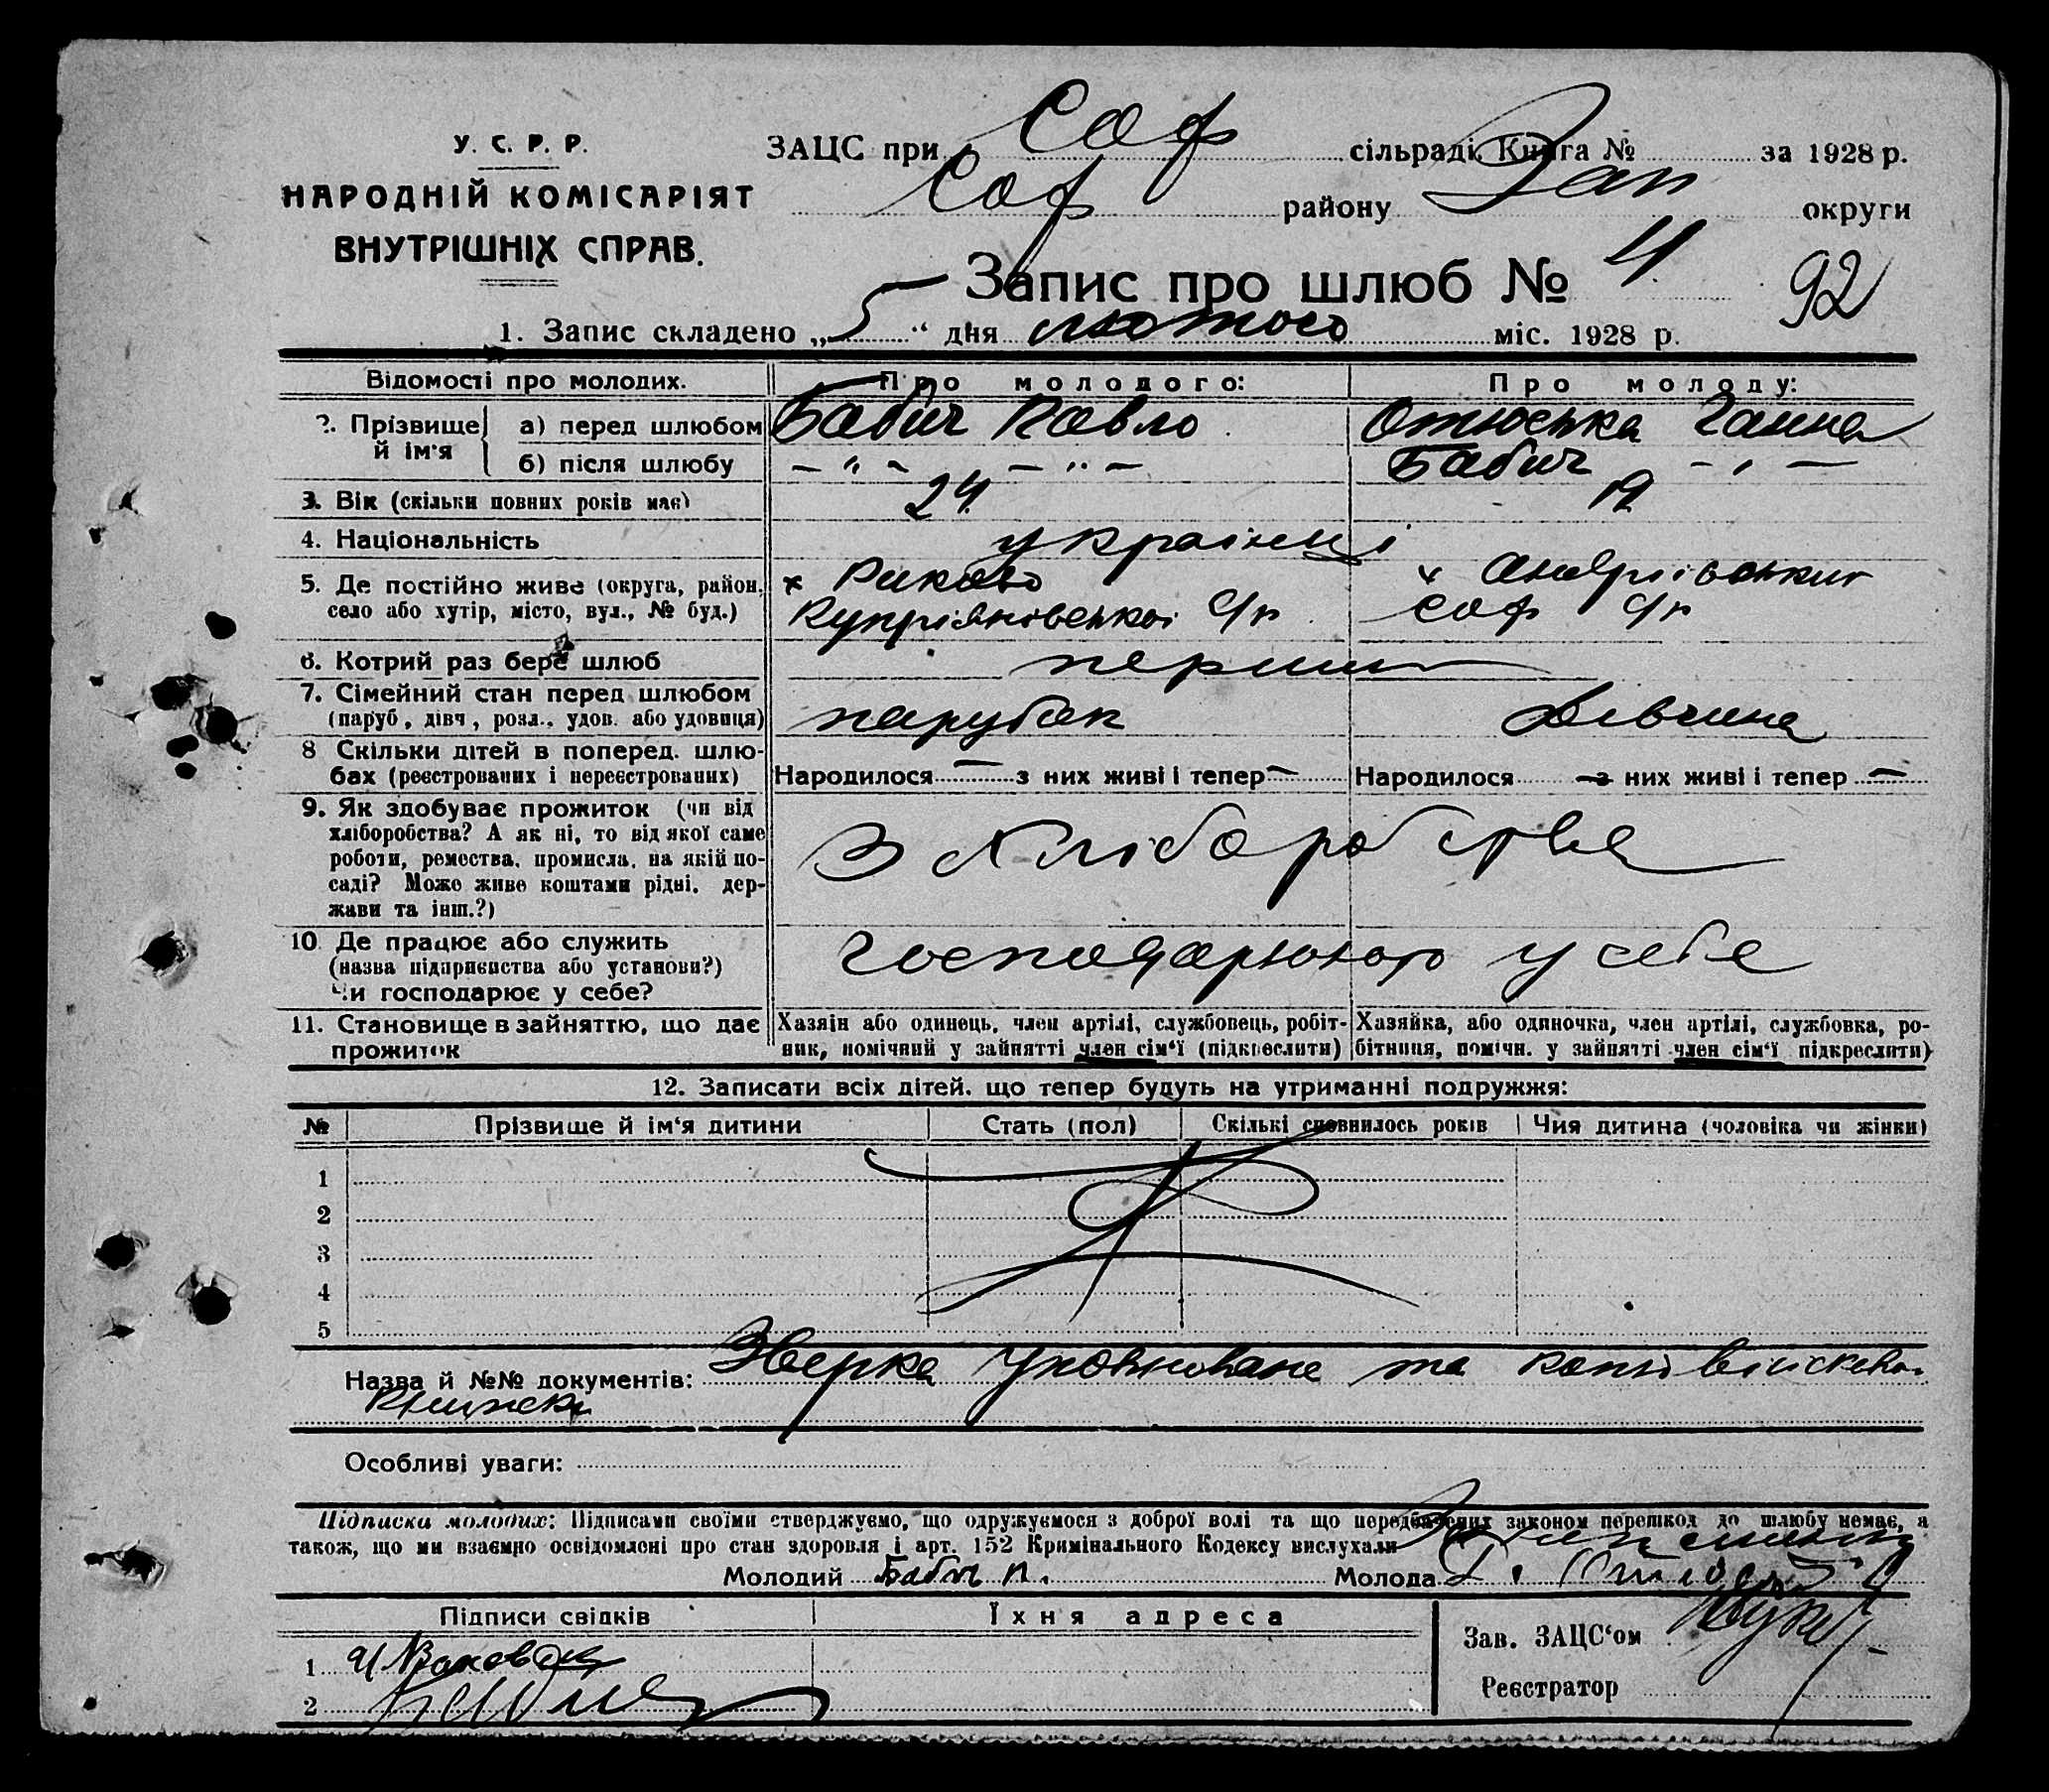 У. С. Р. Р.
НАРОДНІЙ КОМІСАРІЯТ
ВНУТРІШНІХ СПРАВ.
ЗАЦС при Соф сільраді. Книга № за 1928 р.
Соф району Зап округи
Запис про шлюб № 4
92
1. Запис складено „5“ дня лютого міс. 1928 р.
Відомості про молодих. Про молодого: Про молоду:
2. Прізвище й ім'я а) перед шлюбом Бабич Павло Ганна
б) після шлюбу — " — — " — Бабич — " —
3. Вік (скільки повних років має) 24 19
4. Національність українці
5. Де постійно живе (округа, район, х х
село або хутір, місто, вул., № буд.) с/р Соф с/р
6. Котрий раз бере шлюб перший
7. Сімейний стан перед шлюбом
(паруб., дівч., розл., удов. або удовиця) парубок дівчина
8 Скільки дітей в поперед. шлю-
бах (реєстрованих і нереєстрованих) Народилося — з них живі і тепер — Народилося — з них живі і тепер —
9. Як здобуває прожиток (чи від
хліборобства? А як ні, то від якої саме
роботи, ремества, промисла, на якій по-
саді? Може живе коштами рідні, дер-
жави та інш.?)
З хліборобства
10. Де працює або служить
(назва підприємства або установи?)
Чи господарює у себе?
господарюють у себе
11. Становище в зайняттю, що дає
прожиток
Хазяін або одинець, член артілі, службовець, робіт-
ник, помічний у зайнятті член сім'ї (підкреслити)
Хазяйка, або одиночка, член артілі, службовка, ро-
бітниця, помічн. у зайнятті член сім'ї підкреслити)
12. Записати всіх дітей, що тепер будуть на утриманні подружжя:
№ Прізвище й ім'я дитини Стать (пол) Скількі сповнилось років Чия дитина (чоловіка чи жінки)
1
2
3
4
5
Назва й №№ документів: та
книжки
Особливі уваги:
Підписка молодих: Підписами своїми стверджуємо, що одружуємося з доброї волі та що передбачених законом перешкод до шлюбу немає, а
також, що ми взаємно освідомлені про стан здоровля і арт. 152 Кримінального Кодексу вислухали
Молодий Бабич П. Молода
Підписи свідків Їхня адреса
Зав. ЗАЦС'ом
1
Реєстратор
2